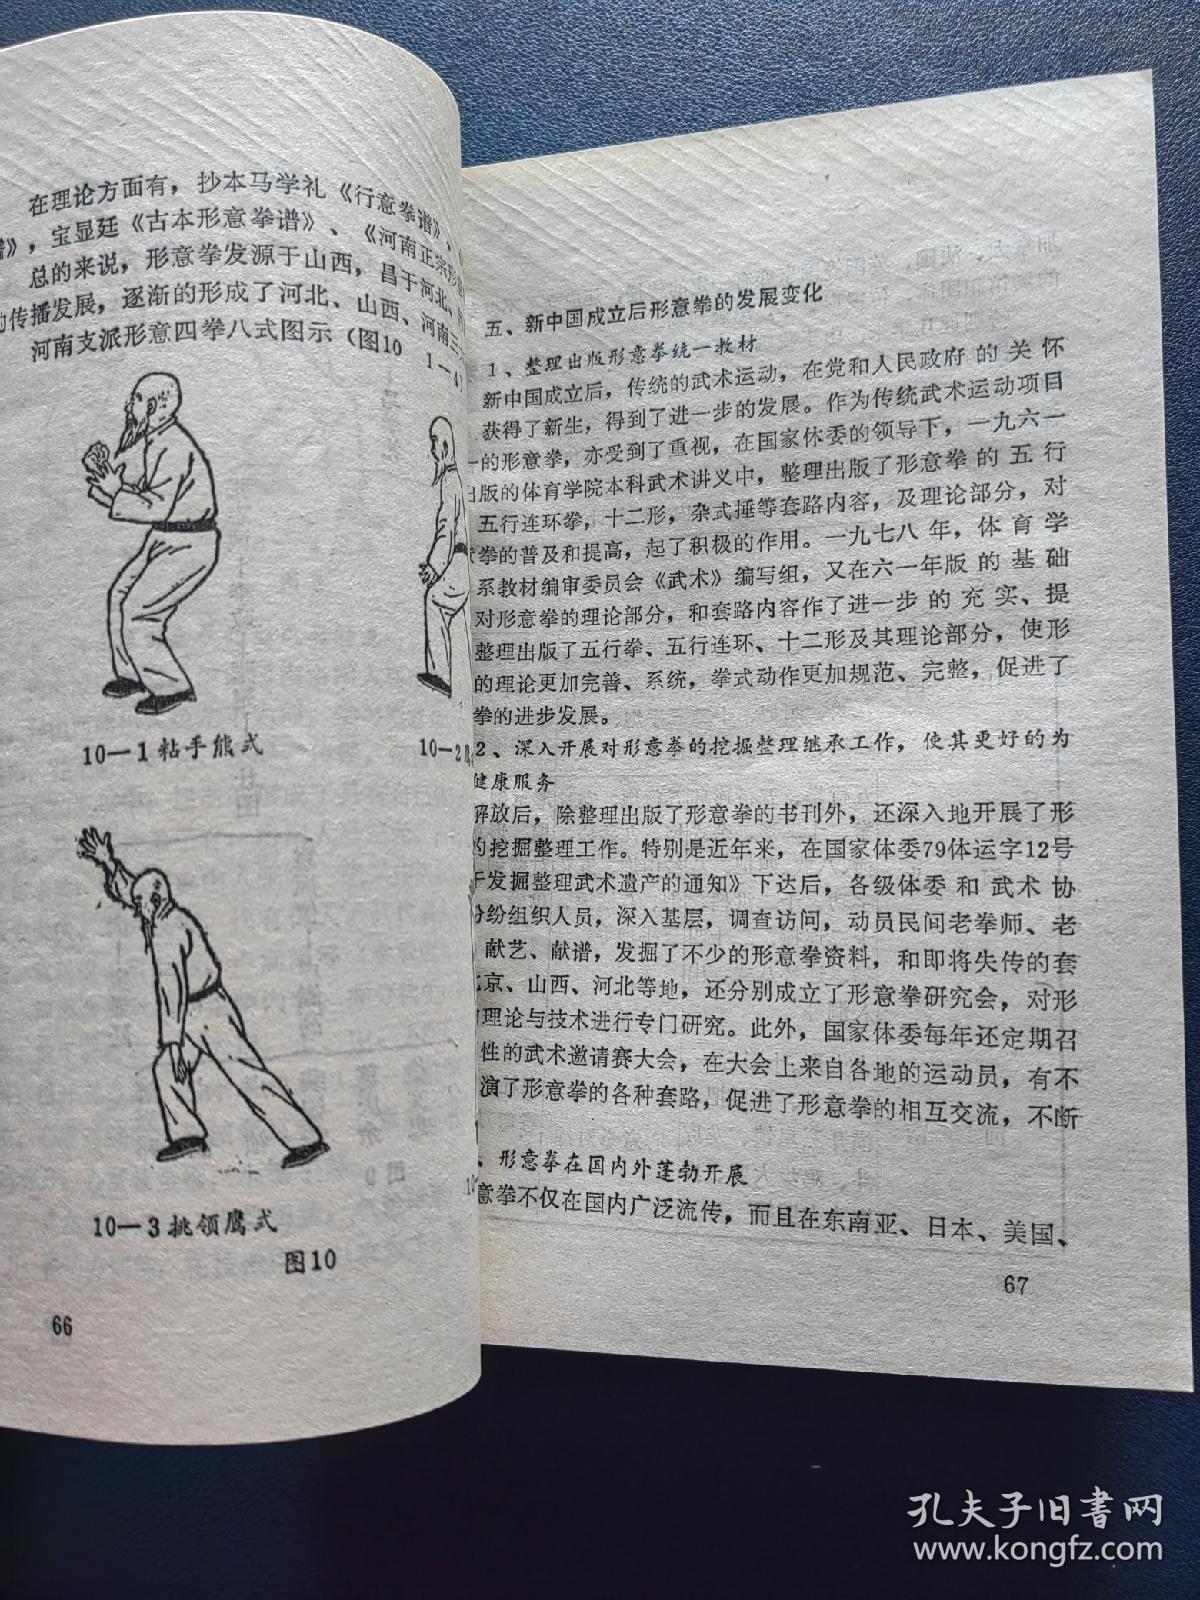 在理论方面有，抄本马学礼《行意拳谱》、
谱》，宝显廷《古本形意拳谱》、《河南正宗形
总的来说，形意拳发源于山西，昌于河北、
传播发展，逐渐的形成了河北、山西、河南三
河南支派形意四拳八式图示（图10 1—
10—1粘手熊式
10—2
10—3挑领鹰式
图10
66
五、新中国成立后形意拳的发展变化
1、整理出版形意拳统一教材
新中国成立后，传统的武术运动，在党和人民政府的关怀
获得了新生，得到了进一步的发展。作为传统武术运动项目
一的形意拳，亦受到了重视，在国家体委的领导下，一九六一
出版的体育学院本科武术讲义中，整理出版了形意拳的五行
五行连环拳，十二形，杂式捶等套路内容，及理论部分，对
拳的普及和提高，起了积极的作用。一九七八年，体育学
系教材编审委员会《武术》编写组，又在六一年版的基础
对形意拳的理论部分，和套路内容作了进一步的充实、提
整理出版了五行拳、五行连环、十二形及其理论部分，使形
的理论更加完善、系统，拳式动作更加规范、完整，促进了
拳的进步发展。
2、深入开展对形意拳的挖掘整理继承工作，使其更好的为
健康服务
解放后，除整理出版了形意拳的书刊外，还深入地开展了形
的挖掘整理工作。特别是近年来，在国家体委79体运字12号
于发掘整理武术遗产的通知》下达后，各级体委和武术协
纷纷组织人员，深入基层，调查访问，动员民间老拳师、老
献艺、献谱，发掘了不少的形意拳资料，和即将失传的套
北京、山西、河北等地，还分别成立了形意拳研究会，对形
理论与技术进行专门研究。此外，国家体委每年还定期召
性的武术邀请赛大会，在大会上来自各地的运动员，有不
演了形意拳的各种套路，促进了形意拳的相互交流，不断
、形意拳在国内外蓬勃开展
意拳不仅在国内广泛流传，而且在东南亚、日本、美国、
67
孔夫子旧书网
www.kongfz.com